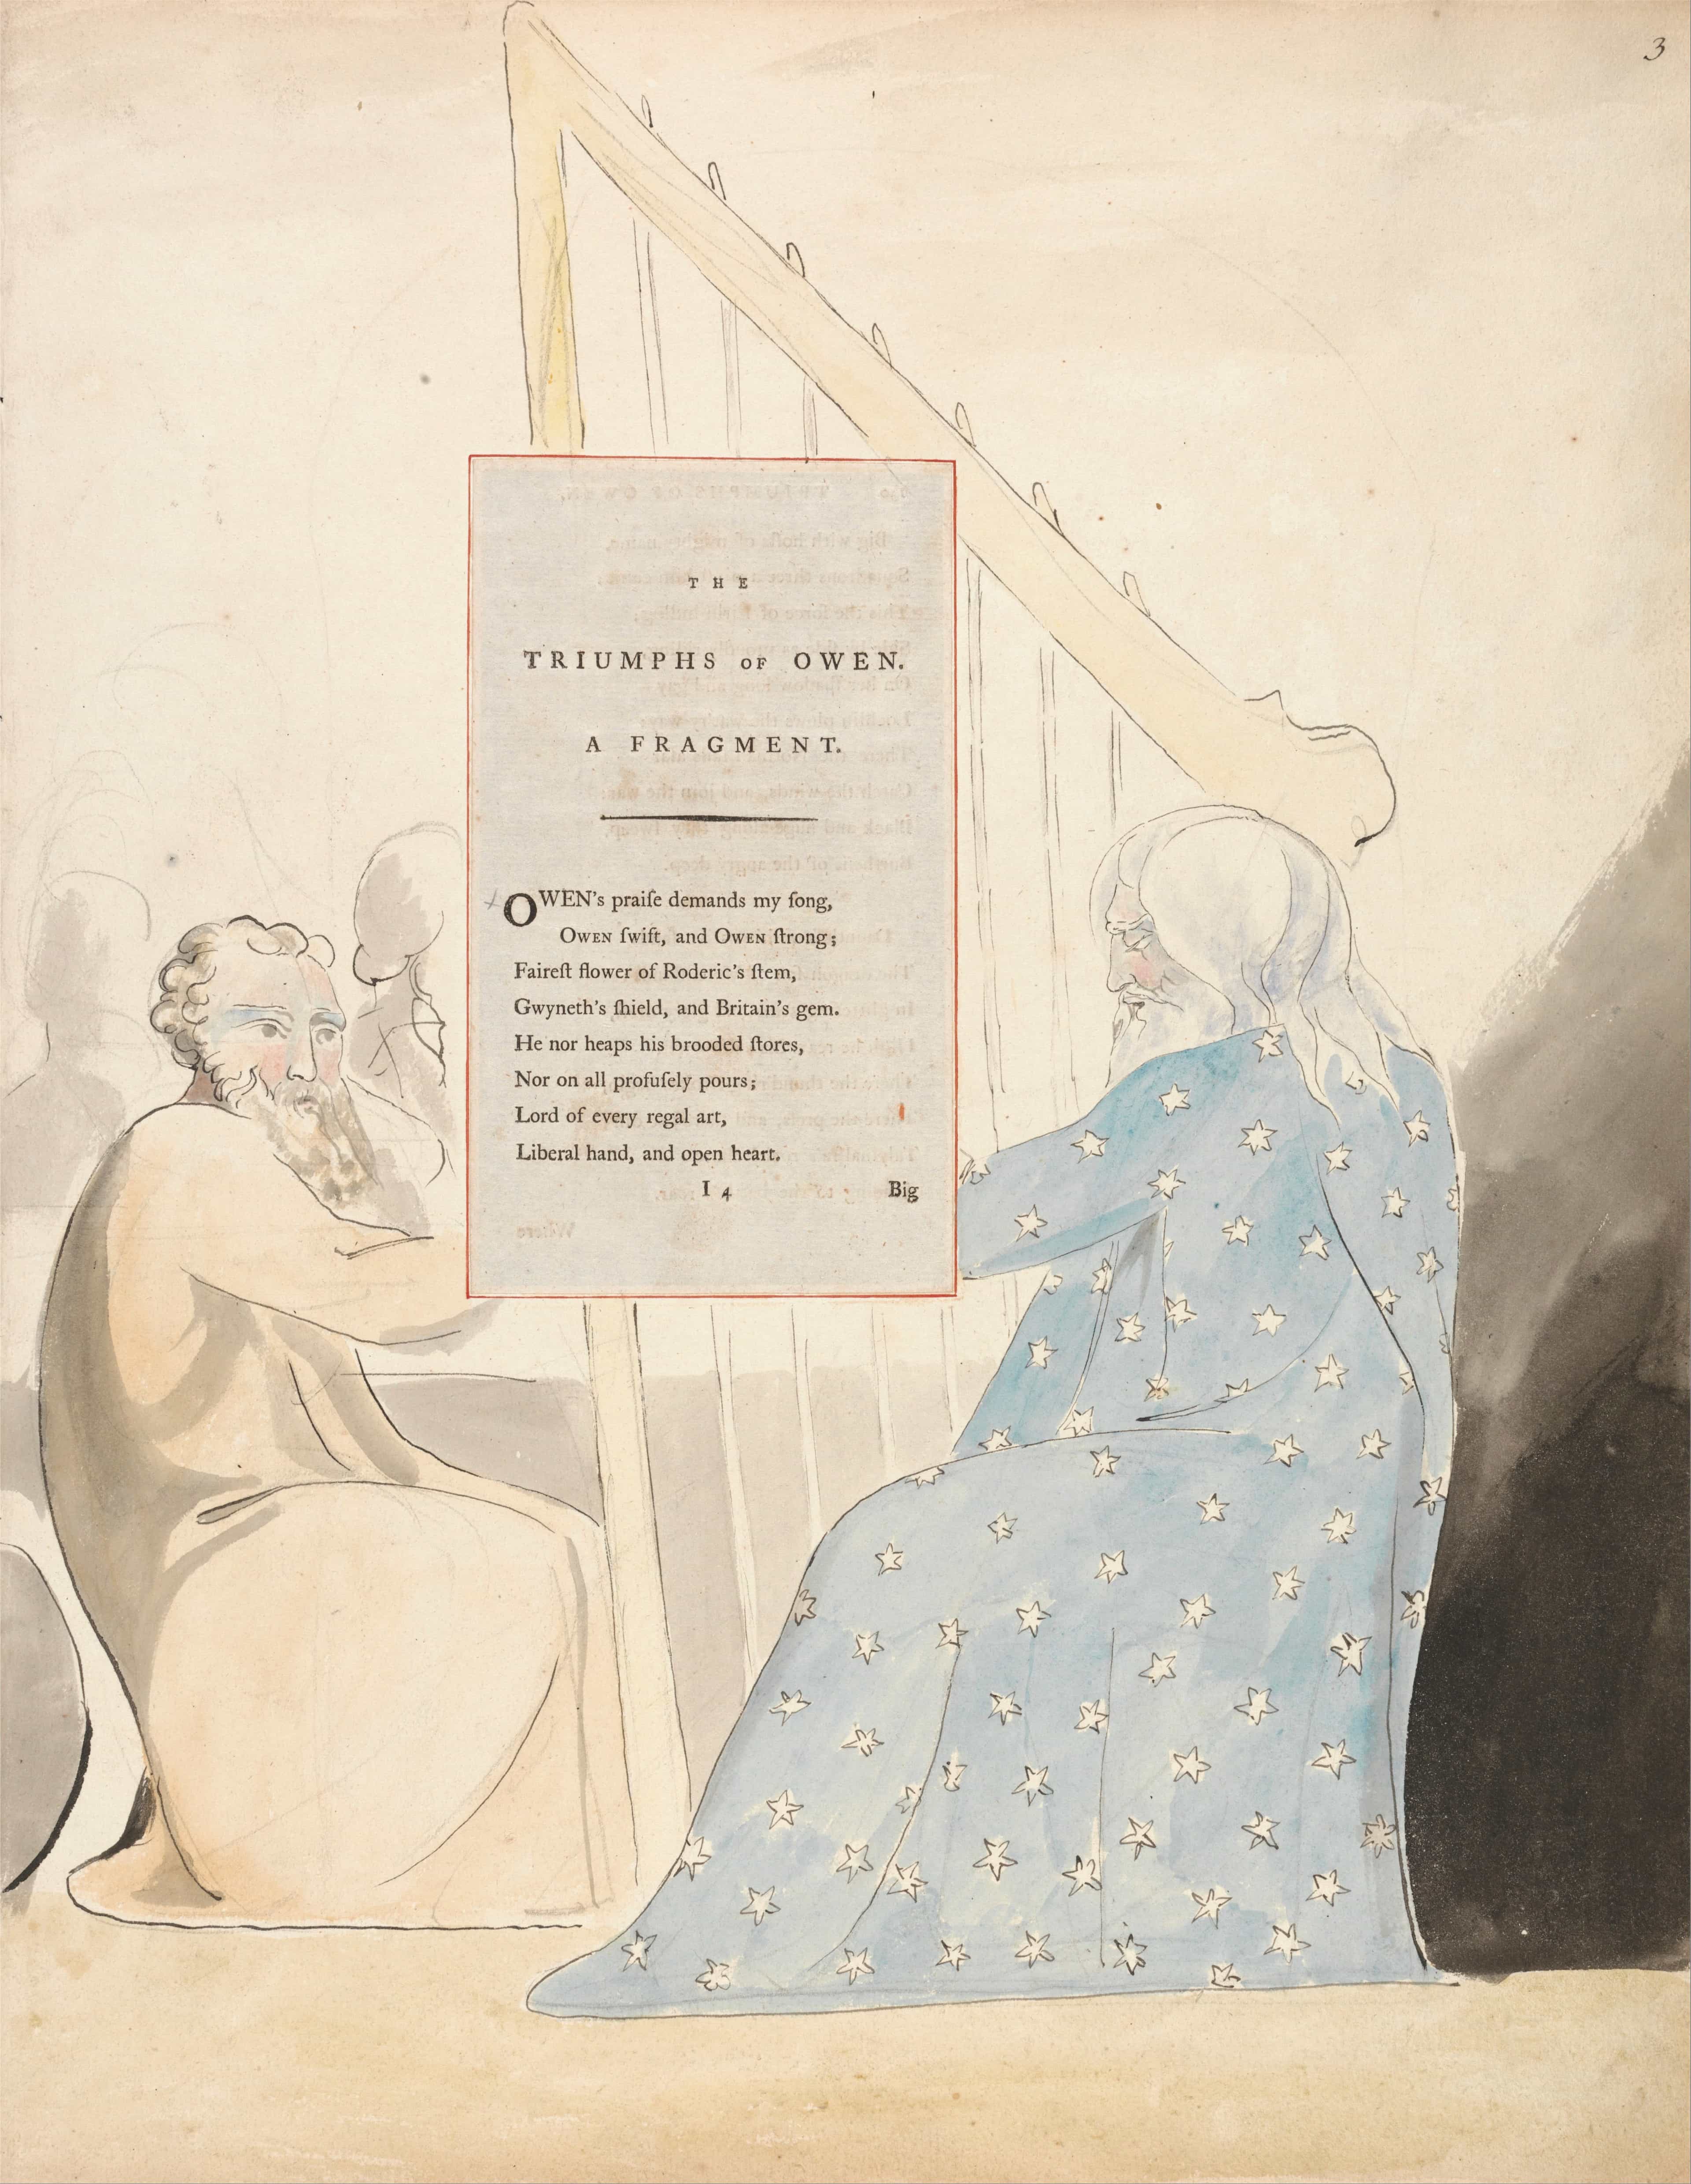 3
THE
TRIUMPHS OF OWEN.
A FRAGMENT.
OWEN's praiſe demands my ſong,
OWEN ſwift, and OWEN ſtrong;
Faireſt flower of Roderic's ſtem,
Gwyneth's ſhield, and Britain's gem.
He nor heaps his brooded ſtores,
Nor on all profuſely pours;
Lord of every regal art,
Liberal hand, and open heart.
I 4 Big